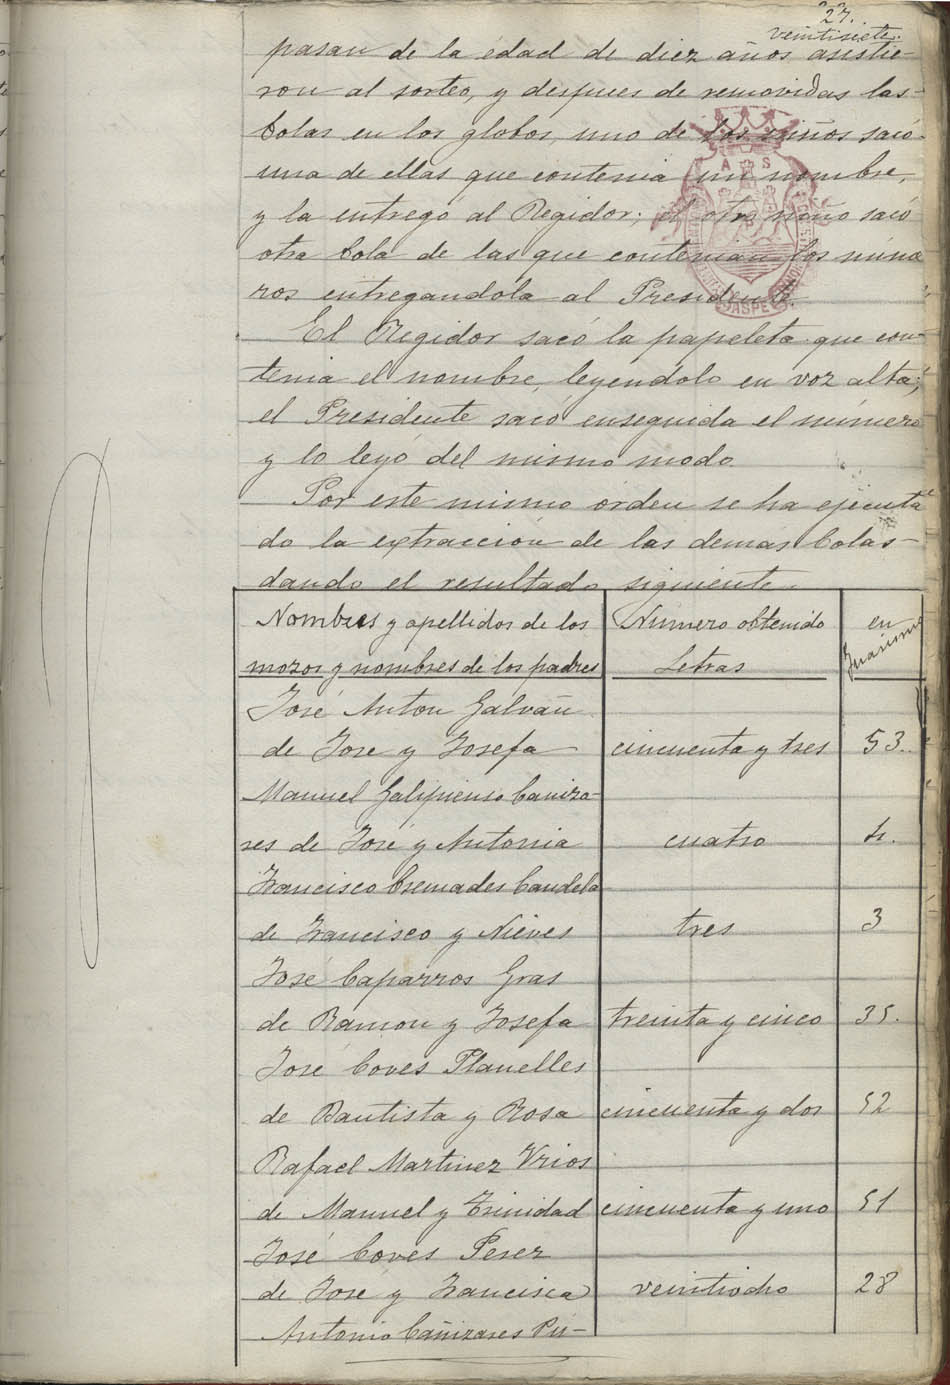 27.
veintisiete.
pasan de la edad de diez años asistie-
ron al sorteo, y despues de removidas las
bolas en los globos, uno de los niños sacó
una de ellas que contenia un nombre,
y la entregó al Regidor; el otro niño sacó
otra bola de las que contenian los núme
ros entregandola al Presidente.
El Regidor sacó la papeleta que con-
tenia el nombre, leyendolo en voz alta;
el Presidente sacó enseguida el número
y lo leyó del mismo modo.
Por este mismo órden se ha ejecuta
do la extracción de las demas bolas-
dando el resultado siguiente.
Nombres y apellidos de los Número obtenido en
mozos y nombres de los padres Letras
José Anton Galvañ
de Jose y Josefa cincuenta y tres 53.
Manuel Galipienso Cañiza-
res de José y Antonia cuatro 4.
Francisco Cremades Candela
de Francisco y Nieves tres 3
José Caparros Gras
de Ramon y Josefa treinta y cinco 35.
José Coves Planelles
de Bautista y Rosa cincuenta y dos 52
Rafael Martinez Vrios
de Manuel y Trinidad cincuenta y uno 51
José Coves Perez
de Jose y Francisca veintiocho 28
Antonio Cañizares Pu-